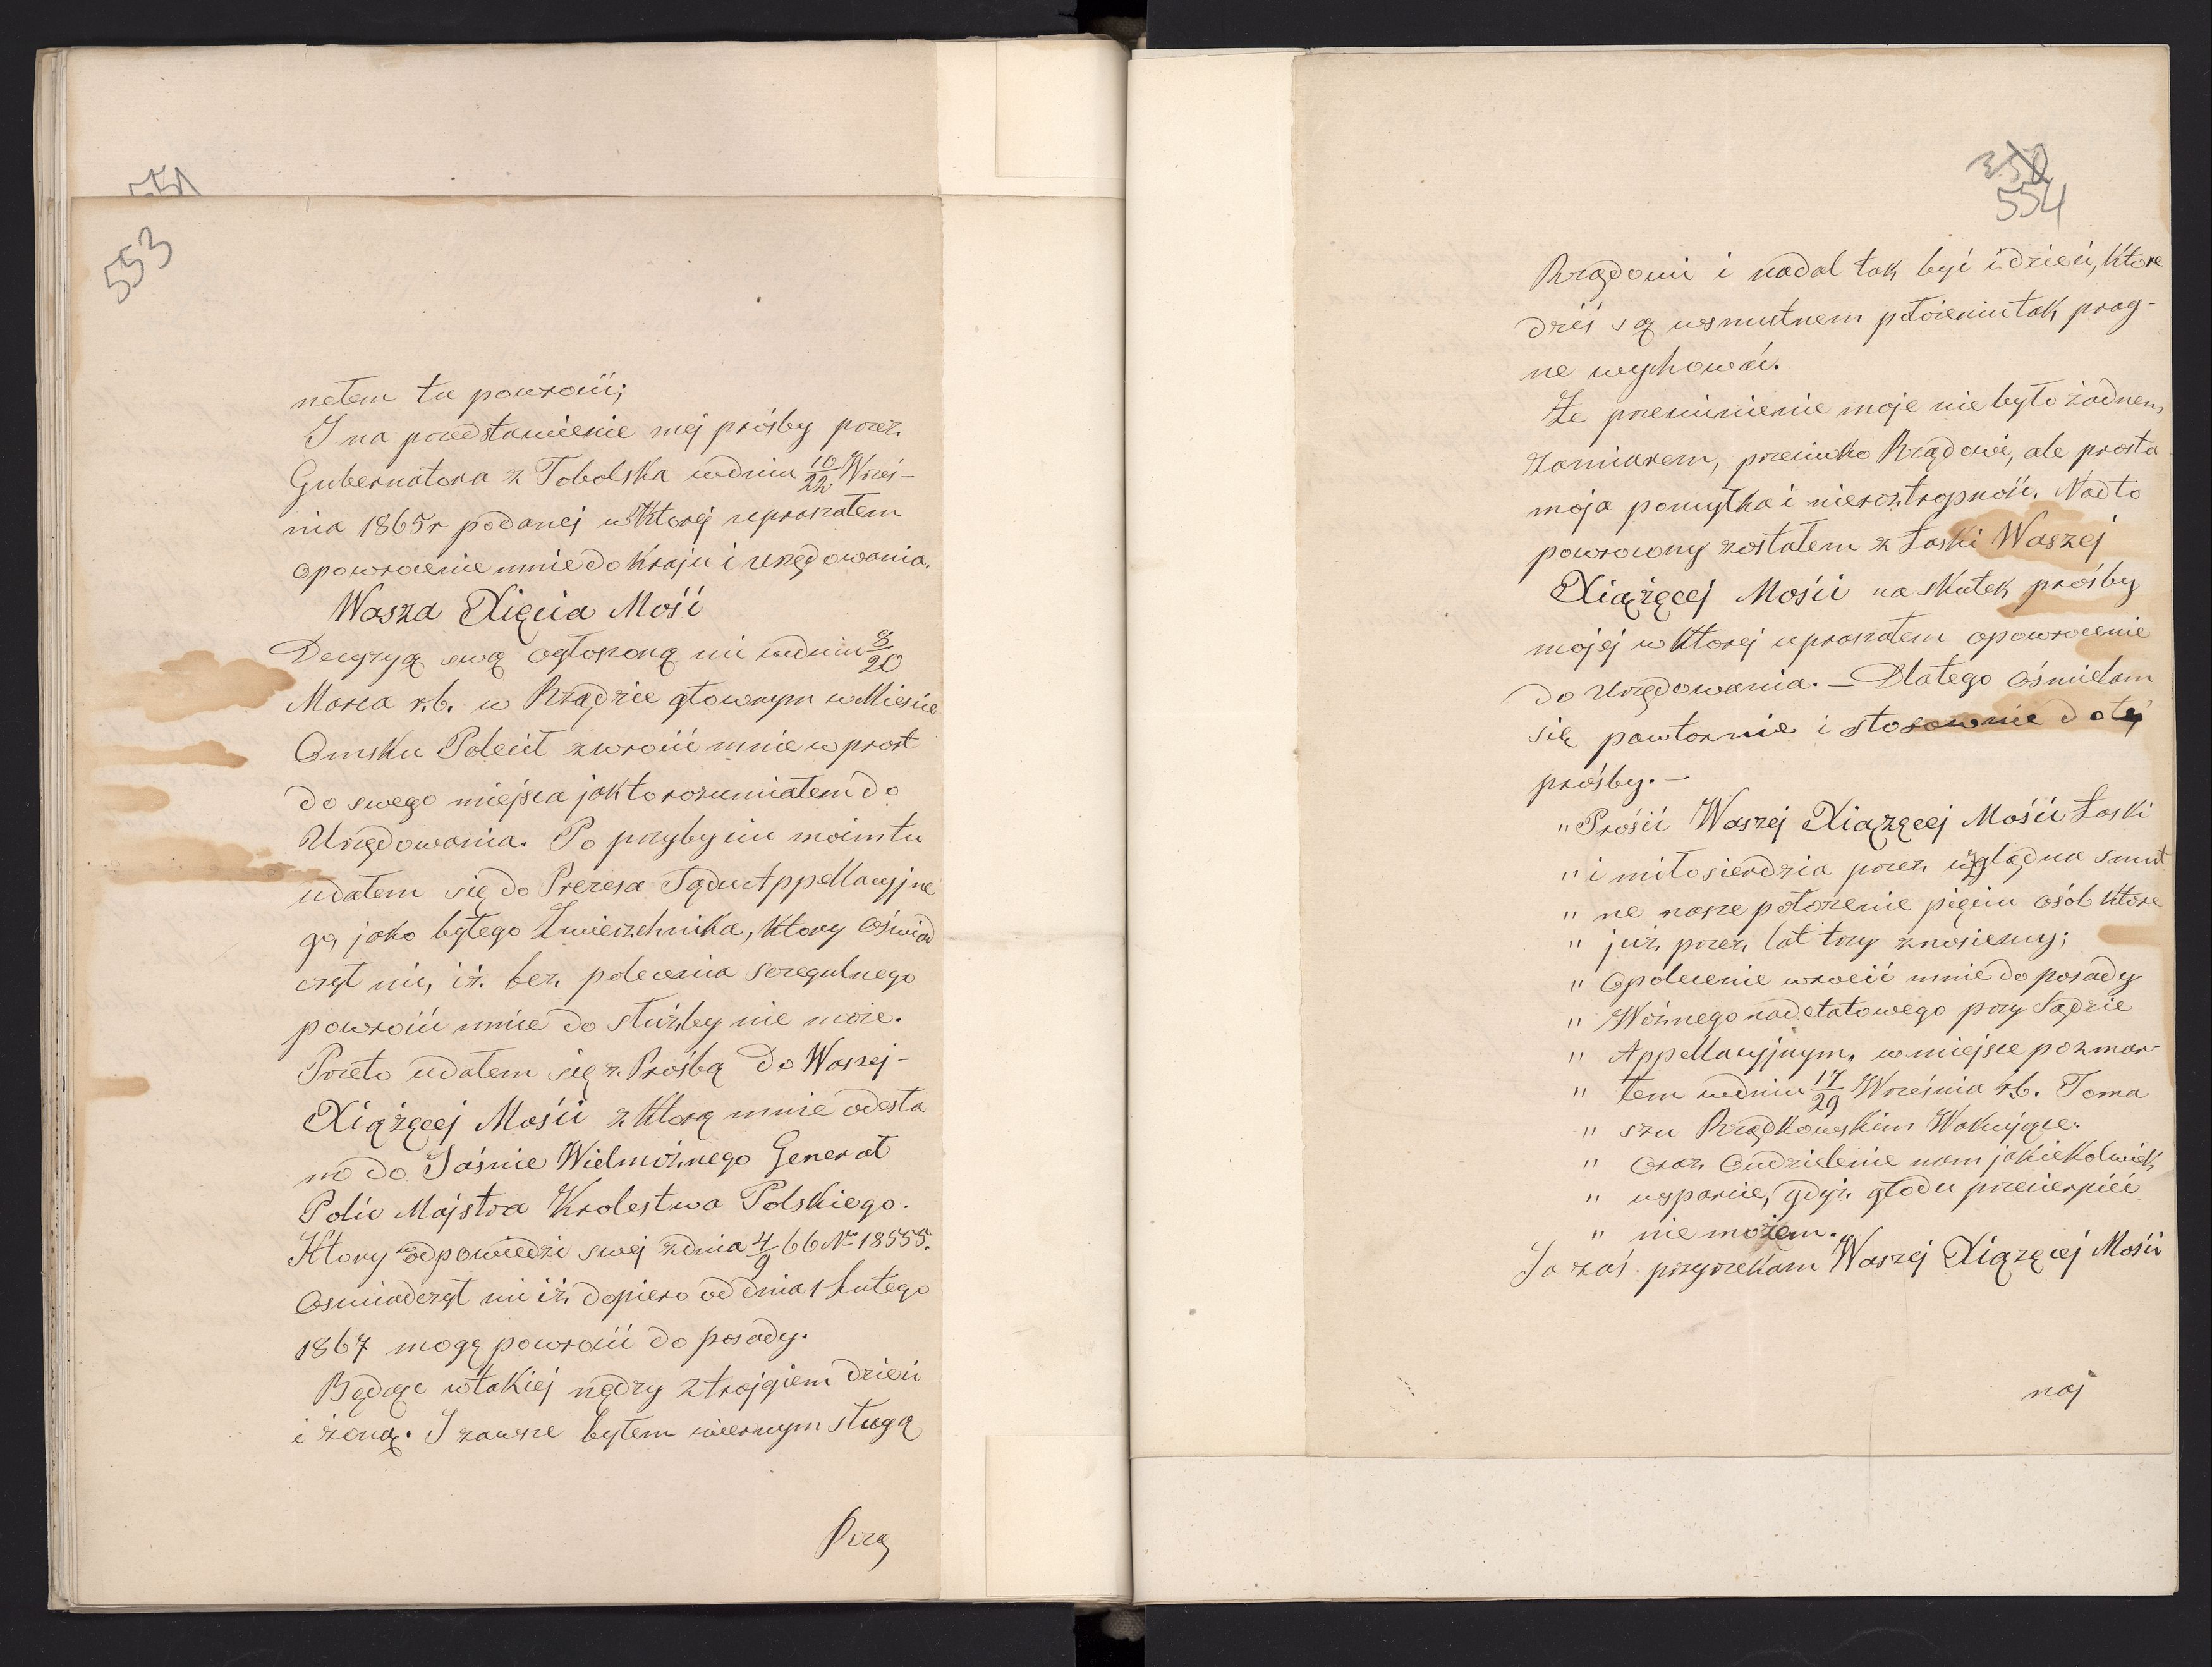 551
553
nełem tu powrócić;
I na przedstawienie mej prósby przez
Gubernatora z Tobolska wdniu 10/22 Wrześ-
nia 1865r podanej w Ktorej uprаszałem
opowrocenie mnie do Kraju i urzędowania.
Wasza Xięcia Mość
Decyzyą swą ogłoszoną mi wdniu 8/20
Marca r.b. w Rządzie głownym w Mieście
Omsku Polecił zwrócić mnie w prost
do swego miejsca jak to rozumiałem do
Urzędowania. Po przybyciu moim tu
udałem się do Prezesa Sądu Appellacyjne
go, jako byłego Zwierzchnika, Ktory Oświad
czył mi, iż bez polecenia szczegulnego
powrócić mnie do służby nie może.
Przeto udałem się z Prośbą Do Waszej-
Xiążęcej Mości z Ktorą mnie odesła
no do Jaśnie Wielmożnego Generał
Polic Majstra Krolestwa Polskiego.
Ktory w odpowiedzi swej zdnia 4/9 66 No 18555.
Oswiadczył mi iż dopiero od dnia 1 Lutego
1867 mogę powrócić do posady.
Będąc wtakiej nędzy z trojgiem dzieci
i żoną. I zawsze byłem wiernym sługą
Rzą
350
554
Rządowi i nadal tak być i dzieci, Ktore
dziś są wsmutnem położeniu tak prag-
ne wychować.
Że przewinienie moje nie było żadnem
zamiarem, przeciwko Rządowi, ale prosta
moja pomyłka i nieroztropność. Nadto
powrocony zostałem z Łaski Waszej
Xiążęcej Mości na skutek prośby
mojej w Ktorej uprаszałem opowrocenie
do Urzędowania. - Dlatego Ośmielam
się powtornie i stosownie do tej
prośby. -
" Prosić Waszej Xiążęcej Mości Łaski
" i miłosierdzia przez wzgląd na smut
" ne nasze położenie pięciu osób Ktore
" już przez lat trzy znosiemy;
" Opolecenie wrócić mnie do posady
" Woźnego nadetatowego przy Sądzie
" Appellacyjnym, w miejsce po zmar-
" łem wdniu 17/29 Września r.b. Toma
" szu Rządkowskim Wakujące.
" Oraz Oudzielenie nam jakiekolwiek
" wsparcie, gdyż głodu przecierpieć
" nie możem.
Ja zaś przyrzekam Waszej Xiążęcej Mości
naj